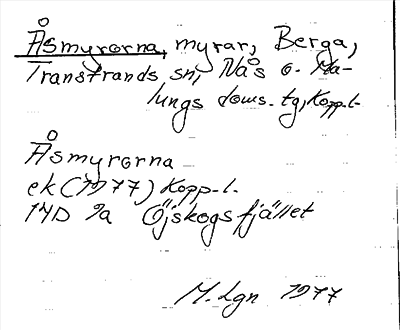 Åsmyrorna, myrar, Berga,
Transtrands sn, Nås o. Ma-
lungs doms. tg, Kopp. l.
Åsmyrorna
ek (1977) Kopp. l.
14D 9a Öjskogsfjället
M. Lgn 1977